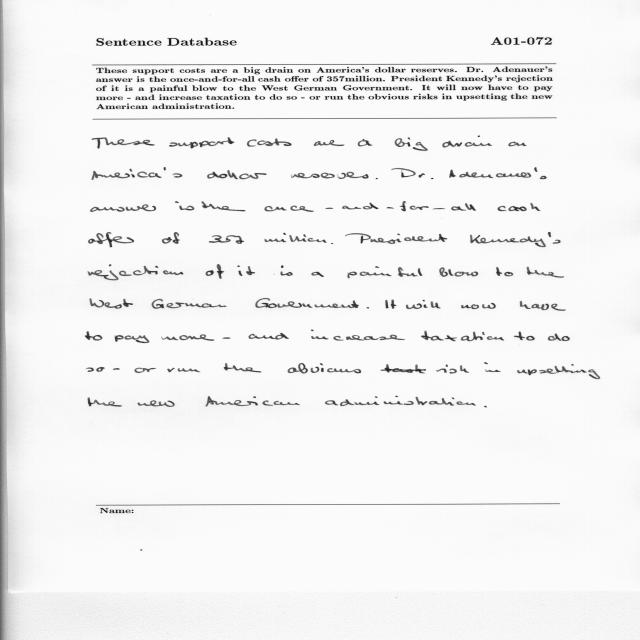 Sentence Database A01-072
These support costs are a big drain on America's dollar reserves. Dr. Adenauer's
answer is the once-and-for-all cash offer of 357million. President Kennedy's rejection
of it is a painful blow to the West German Government. It will now have to pay
more - and increase taxation to do so - or run the obvious risks in upsetting the new
American administration.
These support costs are a big drain on
America's dollar reserves. Dr. Adenauer's
answer is the once-and-for-all cash
offer of 357 million. President Kennedy's
rejection of it is a painful blow to the
West German Government. It will now have
to pay more - and increase taxation to do
so - or run the obvious risk in upsetting
the new American administration.
Name: